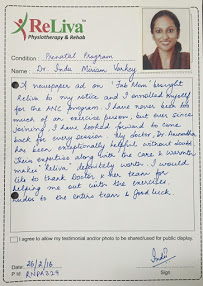 ReLiva™
Physiotherapy & Rehab
Condition : Prenatal Program
Name : Dr. Indu Miriam Varkey
A newspaper ad on 'Fab Mom' brought
Reliva to my notice and I enrolled myself
for the ANC program. I have never been too
much of an exercise person, but ever since
joining, I have looked forward to come
back for every session. My doctor, Dr. Anuradha
has been exceptionally helpful without doubt.
Their expertise along with the care & warmth
makes "Reliva" definitely worth. I would
like to thank Doctor & her team for
helping me out with the exercises.
Kudos to the entire team & Good luck.
I agree to allow my testimonial and/or photo to be shared/used for public display.
Date : 26/2/16
P # RNPA329
Indu
Sign